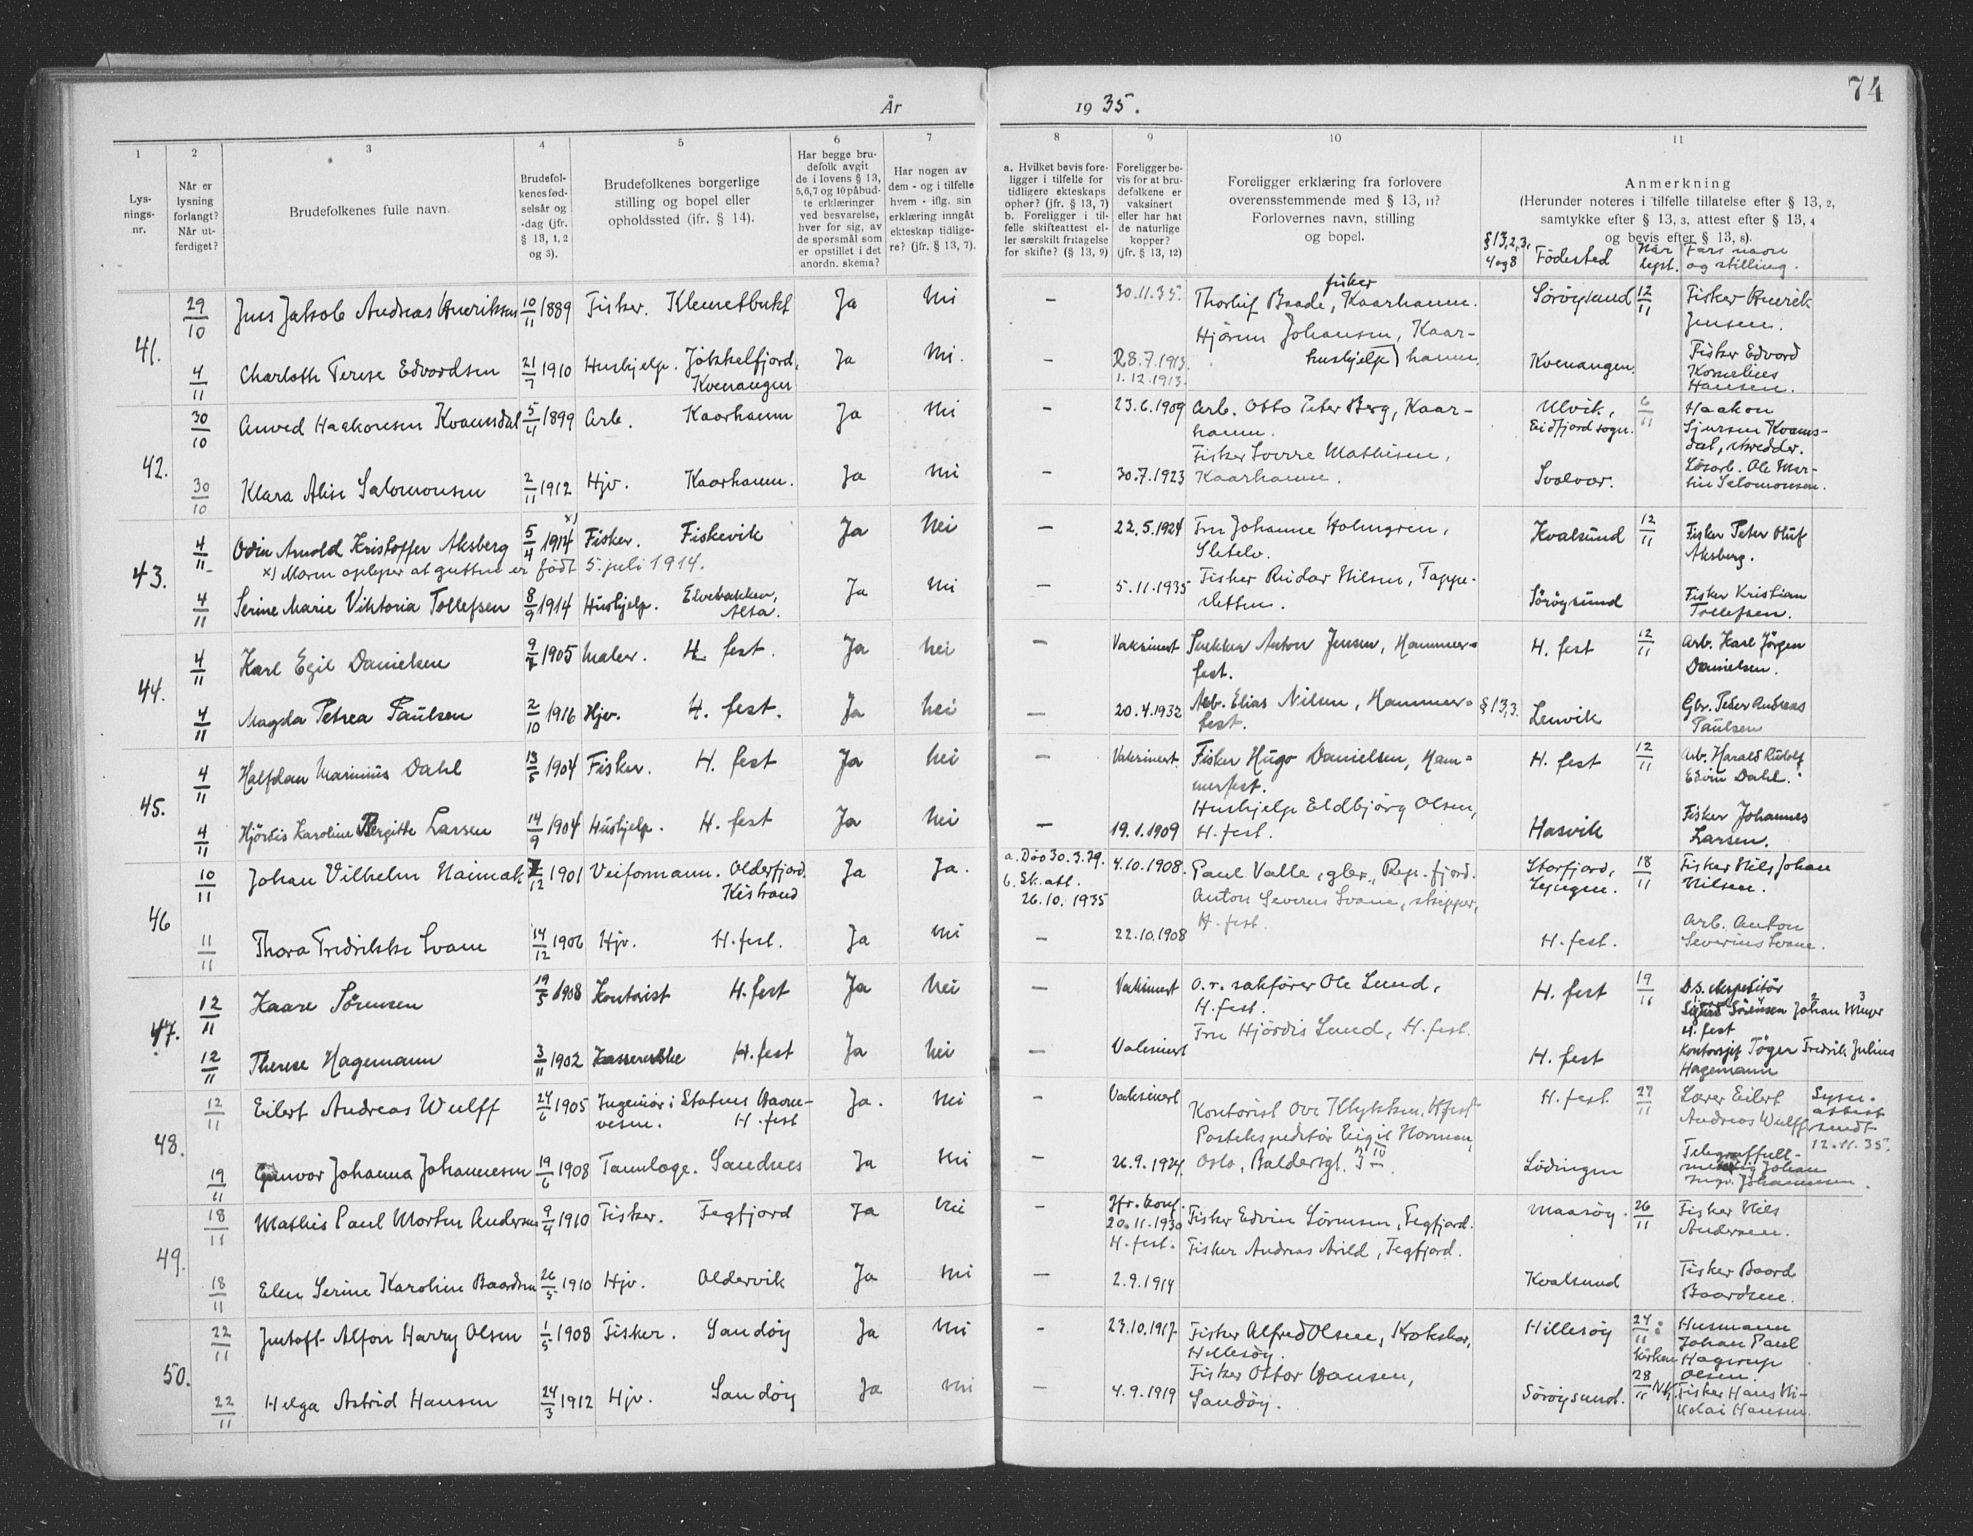 74
År 1935.
1 2 3 4 5 6 7 8 9 10 11
Lys-
nings-
nr.
Når er
lysning
forlangt?
Når ut-
ferdiget?
Brudefolkenes fulle navn.
Brudefol-
kenes fød-
selsår og
-dag (jfr.
§ 13, 1, 2
og 3).
Brudefolkenes borgerlige
stilling og bopel eller
opholdssted (ifr. § 14).
Har begge bru-
defolk avgit
de i lovens § 13,
5, 6, 7 og 10 påbud-
te erklæringer
ved besvarelse,
hver for sig, av
de spørsmål som
er opstillet i det
anordn. skema?
Har nogen av
dem - og i tilfelle
hvem - iflg. sin
erklæring inngått
ekteskap tidlige-
re? (jfr. § 13, 7).
a. Hvilket bevis fore-
ligger i tilfelle for
tidligere ekteskaps
ophør? (jfr. § 13, 7)
b. Foreligger i til-
felle skifteattest el-
ler særskilt fritagelse
for skifte? (§ 13, 9)
Foreligger be-
vis for at bru-
defolkene er
vaksinert
eller har hat
de naturlige
kopper?
(jfr. § 13, 12)
Foreligger erklæring fra forlovere
overensstemmende med § 13, 11?
Forlovernes navn, stilling
og bopel.
Anmerkning
(Herunder noteres i tilfelle tillatelse efter § 13, 2,
samtykke efter § 13, 3, attest efter § 13, 4
og bevis efter § 13, 8).
§ 13,2,3, 4 og 8 Fødested Når lyst. Fars navn og stilling.
41.
29/10 Jens Jakob Andreas Henriksen 10/11 1889 Fisker. Klemetbukt Ja Nei — 30.11.35. Thorleif Baade, fisker, Kaarhamn. Sørøysund 12/11 Fisker Henrik Jensen.
Hjørun Johansen, Kaar-
hushjelp hamn.
4/11 Charloth Terese Edvardsen 21/7 1910 Hushjelp. Jøkkelfjord, Kvenangen Ja Nei. — 28.7.1913. 1.12.1913. Kvenangen. Fisker Edvard Kornelius Hansen.
42.
30/10 Amved Haakonsen Kvamsdal 5/11 1899 Arb. Kaarhamn Ja Nei — 23.6.1909 Arb. Otto Peter Berg, Kaar-
hamn. Ulvik, Eidfjord sogn. 6/11 Haakon Sjursen Kvams-
dal, skredder.
Fisker Sverre Mathisen,
30/10 Klara Alise Salomonsen 2/11 1912 Hjv. Kaarhamn. Ja Nei — 30.7.1923 Kaarhamn. Svolvær. Løsarb. Ole Mar-
tin Salomonsen.
43.
4/11 Odin Arnold Kristoffer Aksberg 5/4 1914 x) Fisker. Fiskevik Ja Nei — 22.5.1924 Fru Johanne Holmgren, Kvalsund 12/11 Fisker Peter Oluf Aksberg.
x) Moren oplyser at gutten er født 5. juli 1914.
4/11 Serine Marie Viktoria Tollefsen 8/9 1914 Hushjelp. Elvebakken, Alta. Ja Nei — 5.11.1935 Fisker Reidar Nilsen, Sørøysund Fisker Kristian Tollefsen.
44.
4/11 Karl Egil Danielsen 9/7 1905 Maler. H. fest. Ja Nei — Vaksinert Anton Jensen, Hammer-
fest. H. fest 12/11 Arb. Karl Jørgen Danielsen.
4/11 Magda Petrea Paulsen 2/10 1916 Hjv. H. fest. Ja Nei — 20.4.1932 Arb. Elias Nilsen, Hammer-
fest. § 13,3. Lenvik Gbr. Peder Andreas Paulsen
45.
4/11 Halfdan Marinius Dahl 13/5 1904 Fisker. H. fest Ja Nei — Vaksinert. Fisker Hugo Danielsen, Ham-
merfest. H. fest 12/11 Arb. Harald Rudolf Edvin Dahl.
Hushjelp Eldbjørg Olsen,
4/11 Hjørdis Karoline Bergitte Larsen 14/9 1904 Hushjelp. H. fest Ja Nei — 19.1.1909 H. fest. Hasvik Fisker Johannes Larsen.
46
10/11 Johan Vilhelm Naimak 7/12 1901 Veiformann. Olderfjord. Kistrand Ja Ja. a. Død 30.3.29. b. Sk. att. 26.10.1935 4.10.1908. Paul Valle, gbr., Rep.fjord. Storfjord, Lyngen. 18/11 Fisker Nils Johan Nilsen.
Anton Severus Svane, skipper,
H. fest.
11/11 Thora Fredrikke Svane 14/12 1906 Hjv. H. fest. Ja Nei — 22.10.1908 H. fest. Arb. Anton Severins Svane.
47.
12/11 Kaare Sørensen 19/5 1908 Kontorist H. fest Ja Nei — Vaksinert O.r. sakfører Ole Lund,
H. fest. H. fest 19/11 D.s. ekspeditør Sigurd Sørensen Johan Meyer H. fest
Fru Hjørdis Lund, H. fest.
12/11 Therese Hagemann 3/11 1902 Kassererske H. fest Ja Nei — Vaksinert H. fest Kontorsjef Tøger Fredrik Julius Hagemann
48.
12/11 Eilert Andreas Wulff 24/6 1905 Ingeniør i Statens Havne-
vesen. H. fest Ja. Nei — Vaksinert Kontorist Ove Klykken, H fest H. fest. 27/11 Lærer Eilert Andreas Wulff Sysm.-
attest sendt 12.11.35.
Postekspeditør Eigil Norman,
19/11 Gunvor Johanna Johannesen 19/6 1908 Tannlege. Sandnes Ja Nei — 26.9.1924. Oslo, Baldersgt. 3 Lødingen Telegraffull-
mektig Johan Ingv. Johannesen.
49.
18/11 Mathis Paul Morten Andersen 9/4 1910 Fisker. Fegfjord Ja Nei — Jfr. konf. 20.11.1930 H. fest. Fisker Edvin Sørensen, Fegfjord. Maasøy. 26/11 Fisker Nils Andersen.
Fisker Andreas Arild, Fegfjord.
18/11 Elen Serine Karoline Baardsen 26/5 1910 Hjv. Oldervik Ja Nei — 2.9.1914 Kvalsund Fisker Baard Baardsen.
50.
22/11 Jentoft Alfon Harry Olsen 1/5 1908 Fisker. Sandøy Ja Nei — 23.10.1917. Fisker Alfred Olsen, Krokskar,
Hillesøy. Hillesøy 24/11 i kirken Husmann Johan Paul Hagerup Olsen.
Fisker Ottor Hansen,
22/11 Helga Astrid Hansen 24/3 1912 Hjv. Sandøy Ja Nei — 4.9.1919 Sandøy. Sørøysund. 28/11 Fisker Hans Ni-
kolai Hansen.